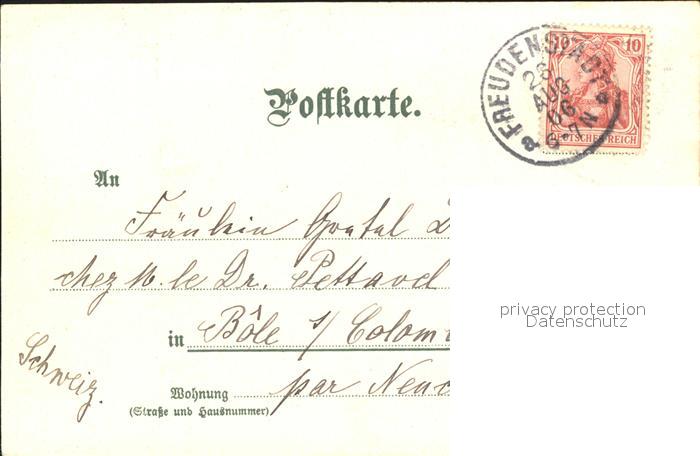 10 10
FREUDENSTADT
28
AUG
06
6-7N
DEUTSCHES REICH
Postkarte.
An
Fräulein Gretel
chez M. le Dr. Pettavel
privacy protection
Datenschutz
in Bôle s/ Colom
Schweiz.
Wohnung par Neuc
(Straße und Hausnummer)